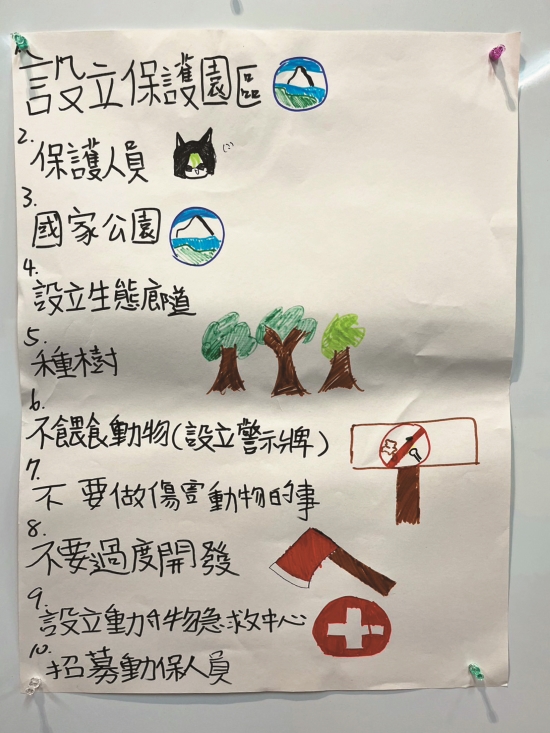 1.
設立保護園區
2.
保護人員
3.
國家公園
4.
設立生態廊道
5.
種樹
6.
不餵食動物(設立警示牌)
7.
不要做傷害動物的事
8.
不要過度開發
9.
設立動物急救中心
10.
招募動保人員